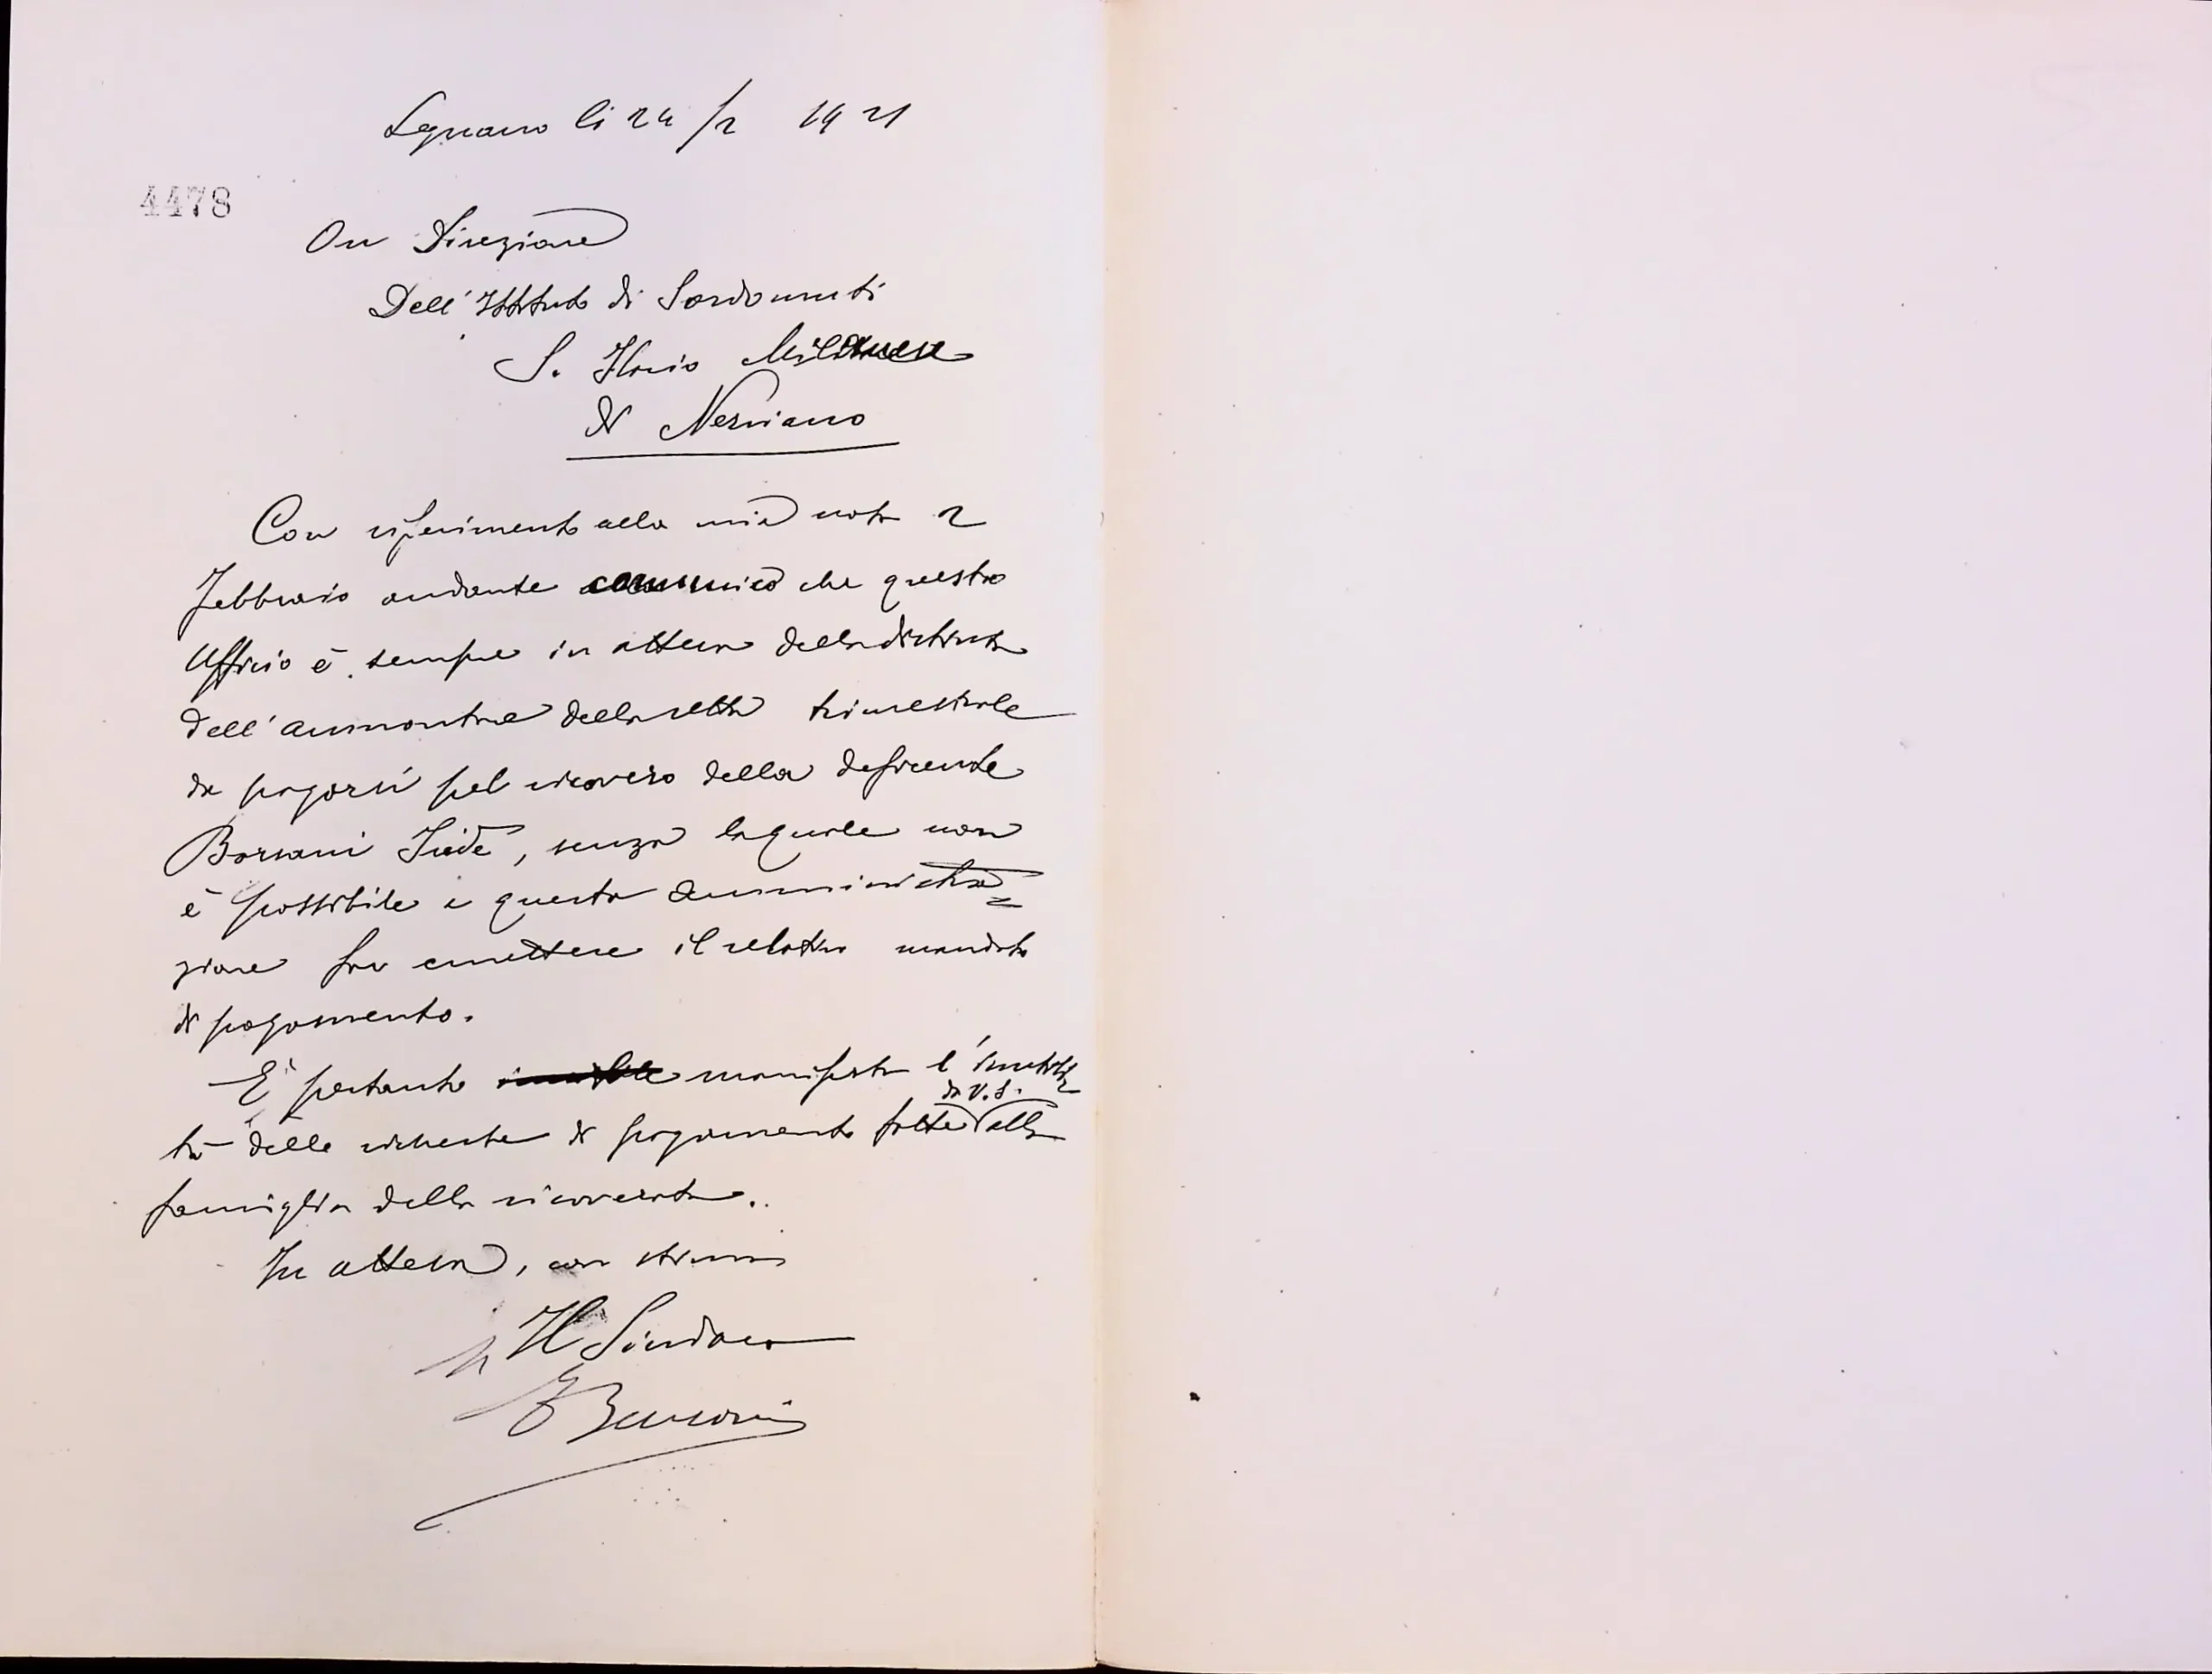 Legnano li 24/2 1921
4478
On Direzione
Dell'Istituto di Sordomuti
S. Ilario Milanese
di Nerviano
Con riferimento alla mia nota 2
Febbraio andante comunico che questo
Ufficio è sempre in attesa della distinta
dell'ammontare della retta trimestrale
da pagarsi pel ricovero della deficiente
Borsani Iside, senza la quale non
è possibile a questa amministra=
zione far emettere il relativo mandato
di pagamento.
È pertanto manifesta l'inutili
da V.S.
tà delle richieste di pagamento fatte alla
famiglia della ricoverata.
In attesa, con stima
Il Sindaco